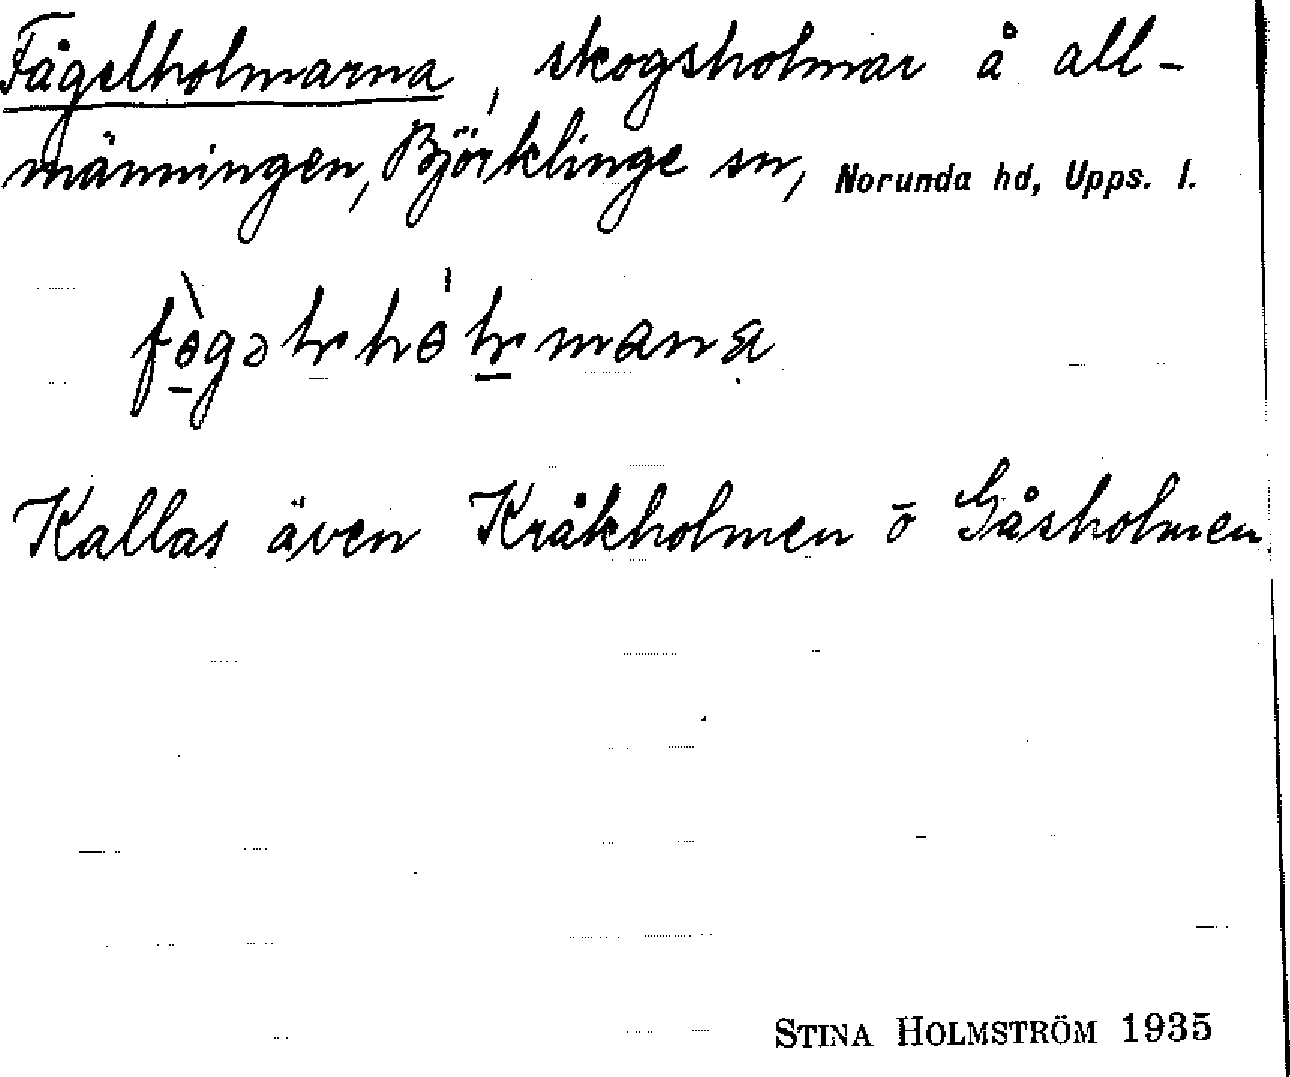 Fågelholmarna, skogsholmar å all-
männingen, Björklinge sn, Norunda hd, Upps. l.
Kallas även Kråkholmen o Gåsholmen
STINA HOLMSTRÖM 1935